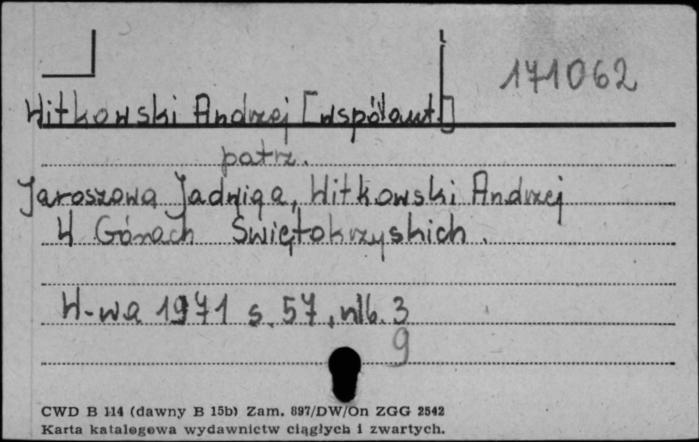 171062
Witkowski Andrzej [współaut.]
patrz.
Jaroszowa Jadwiga, Witkowski Andrzej
W Górach Świętokrzyskich.
W-wa 1971 s. 57, nlb. 3
9
CWD B 114 (dawny B 15b) Zam. 897/DW/On ZGG 2542
Karta katalogowa wydawnictw ciągłych i zwartych.